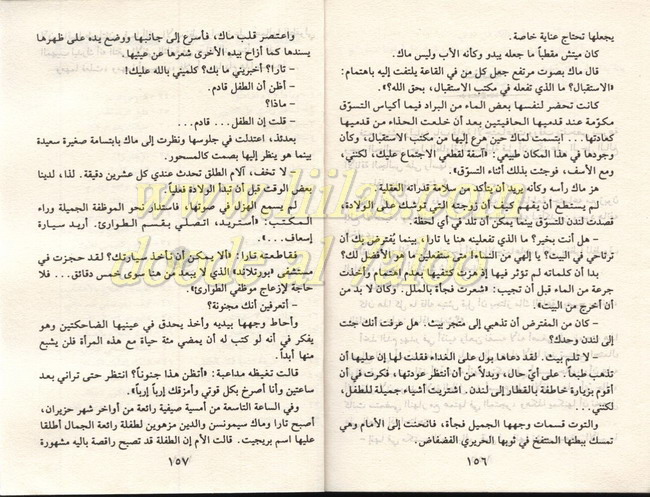 يجعلها تحتاج عناية خاصة.
كان ميتش مقطباً ما جعله يبدو وكأنه الأب وليس ماك.
قال ماك بصوت مرتفع جعل كل من في القاعة يلتفت إليه باهتمام:
«الاستقبال؟ ما الذي تفعله في مكتب الاستقبال، بحق الله؟».
كانت تحضر لنفسها بعض الماء من البراد فيما أكياس التسوّق
مكوّمة عند قدميها الحافيتين بعد أن خلعت الحذاء من قدميها
كعادتها... ابتسمت لماك حين هرع إليها من مكتب الاستقبال، وكأن
وجودها في هذا المكان طبيعي: «آسفة لقطعي الاجتماع عليك، لكنني،
ومع الأسف، فوجئت بذلك أثناء التسوّق».
هز ماك رأسه وكأنه يريد أن يتأكد من سلامة قدراته العقلية.
لم يستطع أن يفهم كيف أن زوجته التي توشك على الولادة،
قصدت لندن للتسوّق بينما يمكن أن تلد في أي لحظة.
– هل أنت بخير؟ ما الذي تفعلينه هنا يا تارا، بينما يُفترض بك أن
ترتاحي في البيت؟ يا إلهي من النساء! متى ستفعلين ما هو الأفضل لك؟
بدا أن كلماته لم تؤثر فيها إذ هزت كتفيها بعدم اهتمام وأخذت
جرعة من الماء قبل أن تجيب: «شعرت فجأة بالملل. وكان لا بد من
أن أخرج من البيت».
– كان من المفترض أن تذهبي إلى متجر بيث. هل عرفت أنك جئت
إلى لندن وحدك؟
– لا تلم بيث. لقد دعاها بول على الغداء فقلت لها إن عليها أن
تذهب طبعاً. على أيّ حال، وبدلاً من أن أنتظر عودتها، فكرت في أن
أقوم بزيارة خاطفة بالقطار إلى لندن. اشتريت أشياء جميلة للطفل،
لكنني...
والتوت قسمات وجهها الجميل فجأة، فانحنت إلى الأمام وهي
تمسك ببطنها المنتفخ في ثوبها الحريري الفضفاض.
١٥٦
واعتصر قلب ماك، فأسرع إلى جانبها ووضع يده على ظهرها
يسندها كما أزاح بيده الأخرى شعرها عن عينيها.
– تارا؟ أخبريني ما بك؟ كلميني بالله عليك!
– أظن أن الطفل قادم.
– ماذا؟
– قلت إن الطفل... قادم...
بعدئذ، اعتدلت في جلوسها ونظرت إلى ماك بابتسامة صغيرة سعيدة
بينما هو ينظر إليها بصمت كالمسحور.
– لا تخف، آلام الطلق تحدث عندي كل عشرين دقيقة. لذا، لدينا
بعض الوقت قبل أن تبدأ الولادة فعلياً.
لم يسمع الهزل في صوتها، فاستدار نحو الموظفة الجميلة وراء
المكتب: «أستريد، اتصلي بقسم الطوارئ. أريد سيارة
إسعاف...».
فقاطعته تارا: «ألا يمكن أن تأخذ سيارتك؟ لقد حجزت في
مستشفى «بورتلاند» الذي لا يبعد من هنا سوى خمس دقائق... فلا
حاجة لإزعاج موظفي الطوارئ».
– أتعرفين أنك مجنونة؟
وأحاط وجهها بيديه وأخذ يحدق في عينيها الضاحكتين وهو
يفكر في أنه لو كتب له أن يمضي مئة حياة مع هذه المرأة فلن يشبع
منها أبداً.
قالت تغيظه مداعبة: «أتظن هذا جنوناً؟ انتظر حتى تراني بعد
ساعتين وأنا أصرخ بكل قوتي وأمزقك إرباً إرباً».
وفي الساعة التاسعة من أمسية صيفية رائعة من أواخر شهر حزيران،
أصبح تارا وماك سيمونسن والدين مزهوين لطفلة رائعة الجمال أطلقا
عليها اسم بريجيت. قالت الأم إن الطفلة قد تصبح راقصة باليه مشهورة
١٥٧